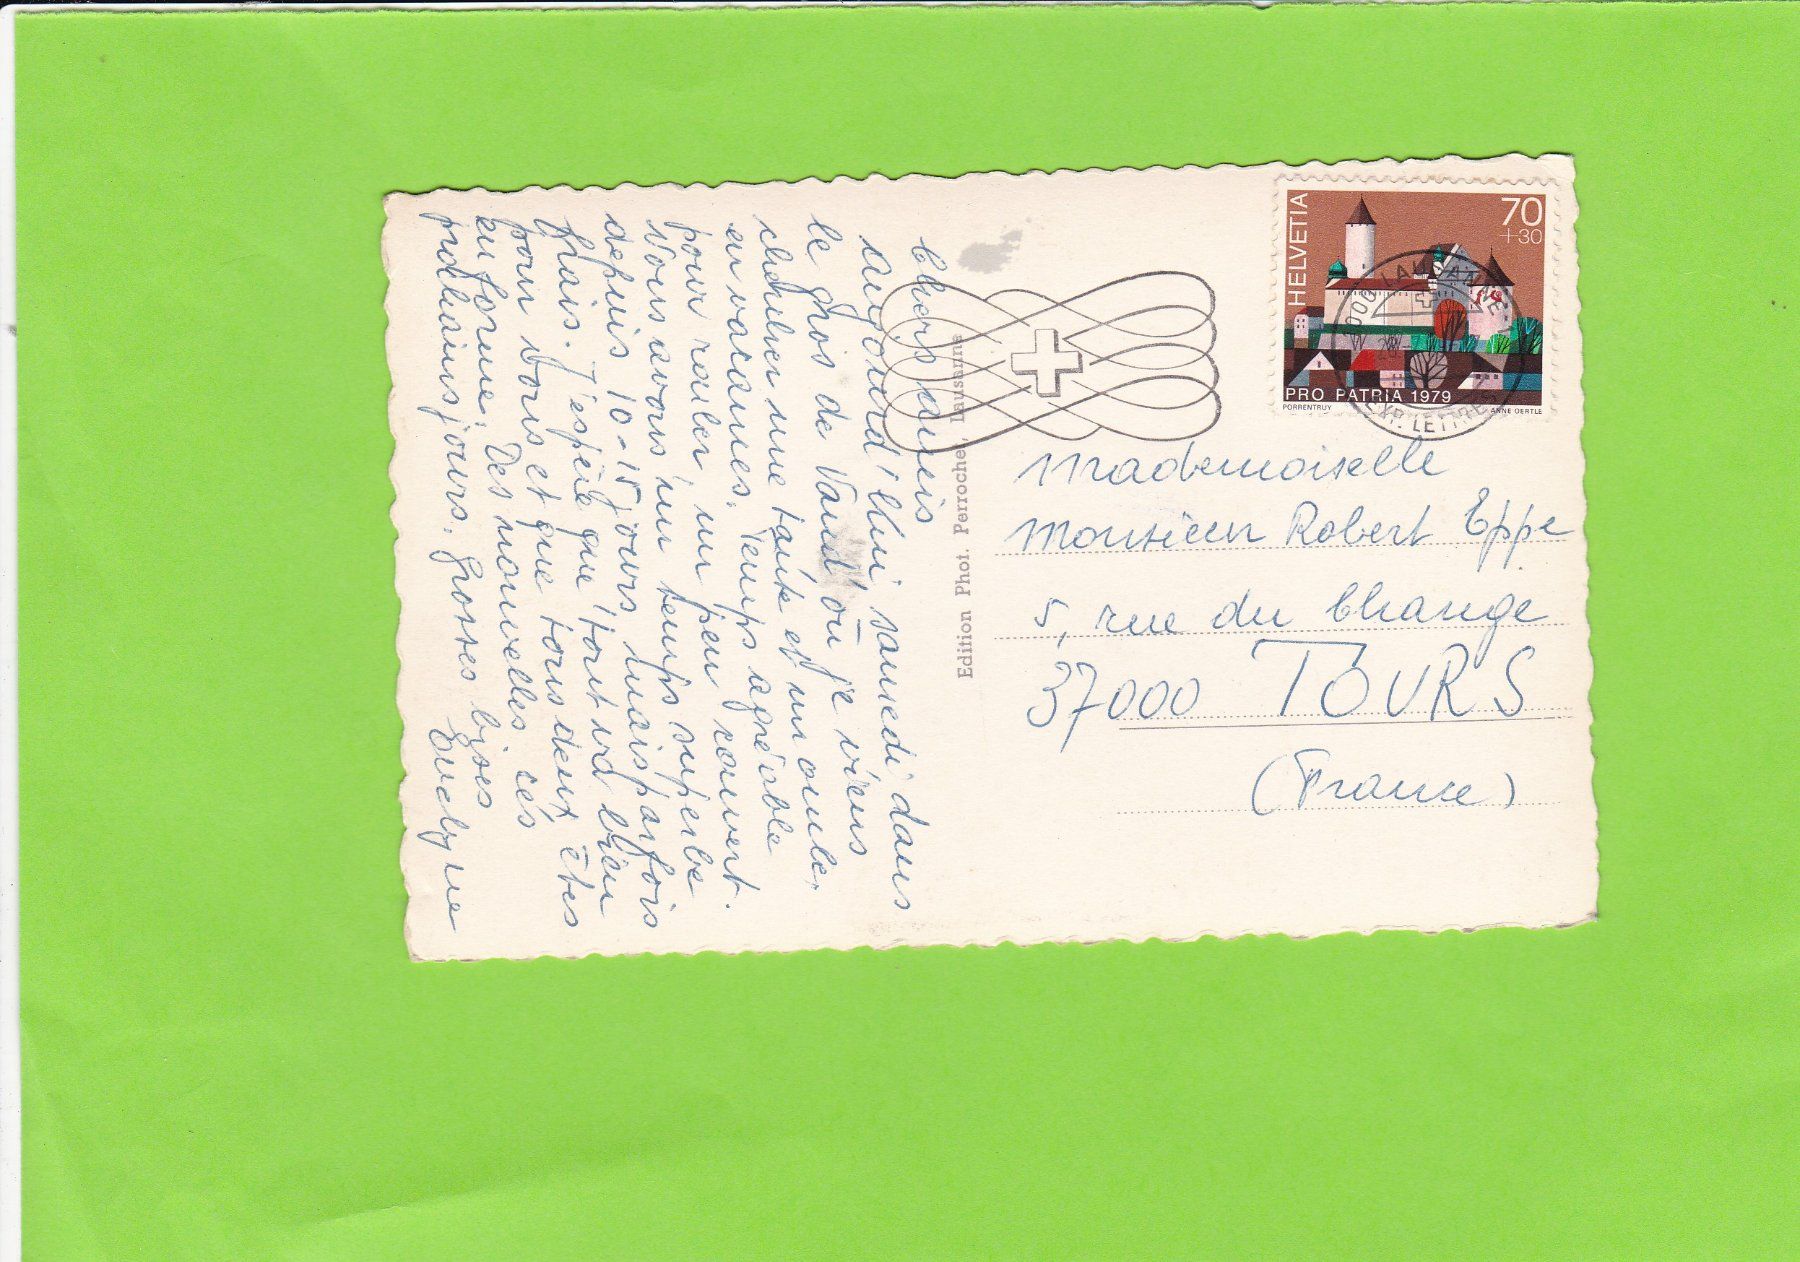 Chers amis
Aujourd'hui samedi dans
le gros de Vaud où je viens
chercher une tante et un oncle,
en vacances. Temps agréable
pour rouler, un peu couvert.
Nous avons un temps superbe
depuis 10-15 jours mais parfois
frais. J'espère que tout va bien
pour vous et que tous deux êtes
en forme. Des nouvelles, ces
prochains jours. Grosses bises
Evelyne
Edition Phot. Perrochet, Lausanne
HELVETIA
70
+30
PRO PATRIA 1979
PORRENTRUY
ANNE OERTLE
1000 LAUSANNE 1
EXP. LETTRES
Mademoiselle
Monsieur Robert Eppe
5, rue du Change
37000 TOURS
(France)